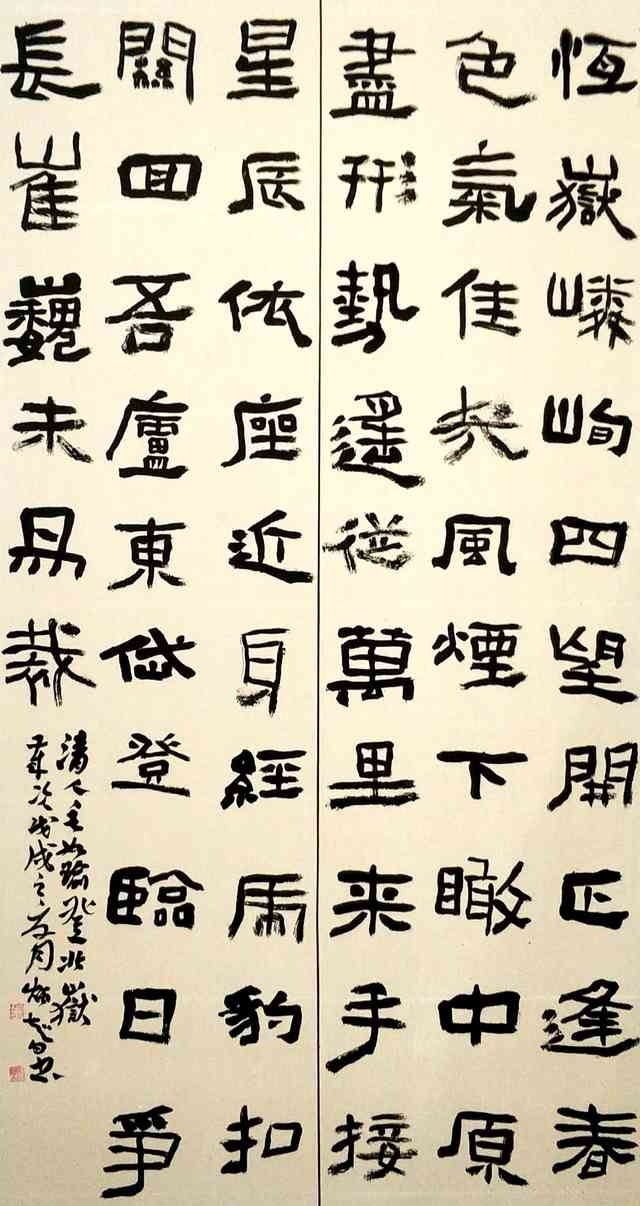 恆嶽嶙峋四望開正逢春
色氣佳哉風煙下瞰中原
盡形勢遥従萬里来手接
星辰依座近身經虎豹扣
關回吾廬東岱登臨日爭
長崔巍未易裁
清人王登北嶽
歲次戊戌之夏月書